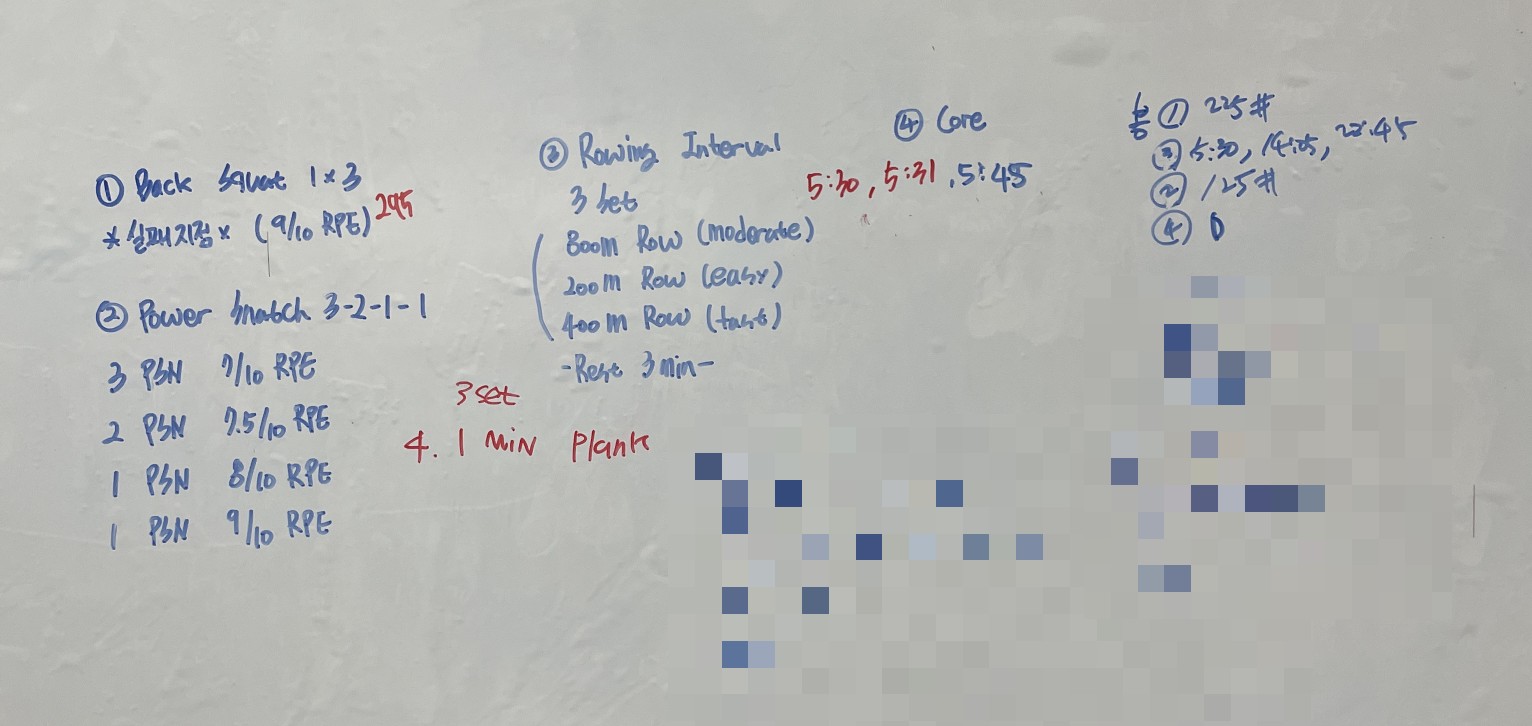 ① Back Squat 1×3
*실패지점* (9/10 RPE) 295
② Power Snatch 3-2-1-1
3 PSN 7/10 RPE
2 PSN 7.5/10 RPE
1 PSN 8/10 RPE
1 PSN 9/10 RPE
③ Rowing Interval
3 Set
800m Row (moderate)
200m Row (easy)
400m Row (fast)
-Rest 3min-
3set
4. 1 Min Plank
④ Core
5:30, 5:31, 5:45
① 225#
③ 5:30, 14:05, 22:45
② 125#
④ 0